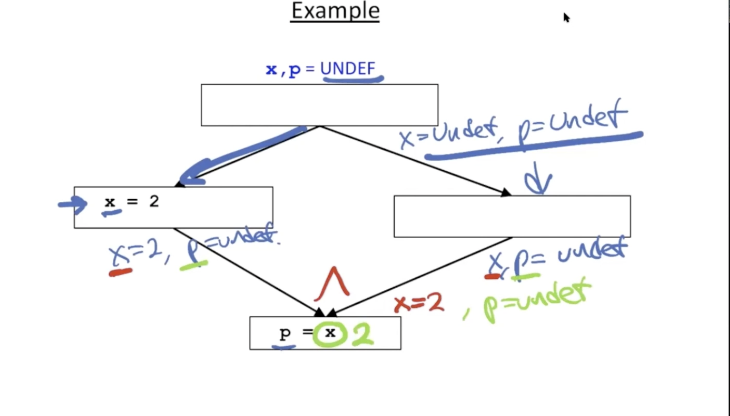 Example
x,p = UNDEF
x=Undef, p=Undef
x = 2
x=2, p=undef.
x,p= undef
∧
x=2, p=undef
p = x 2